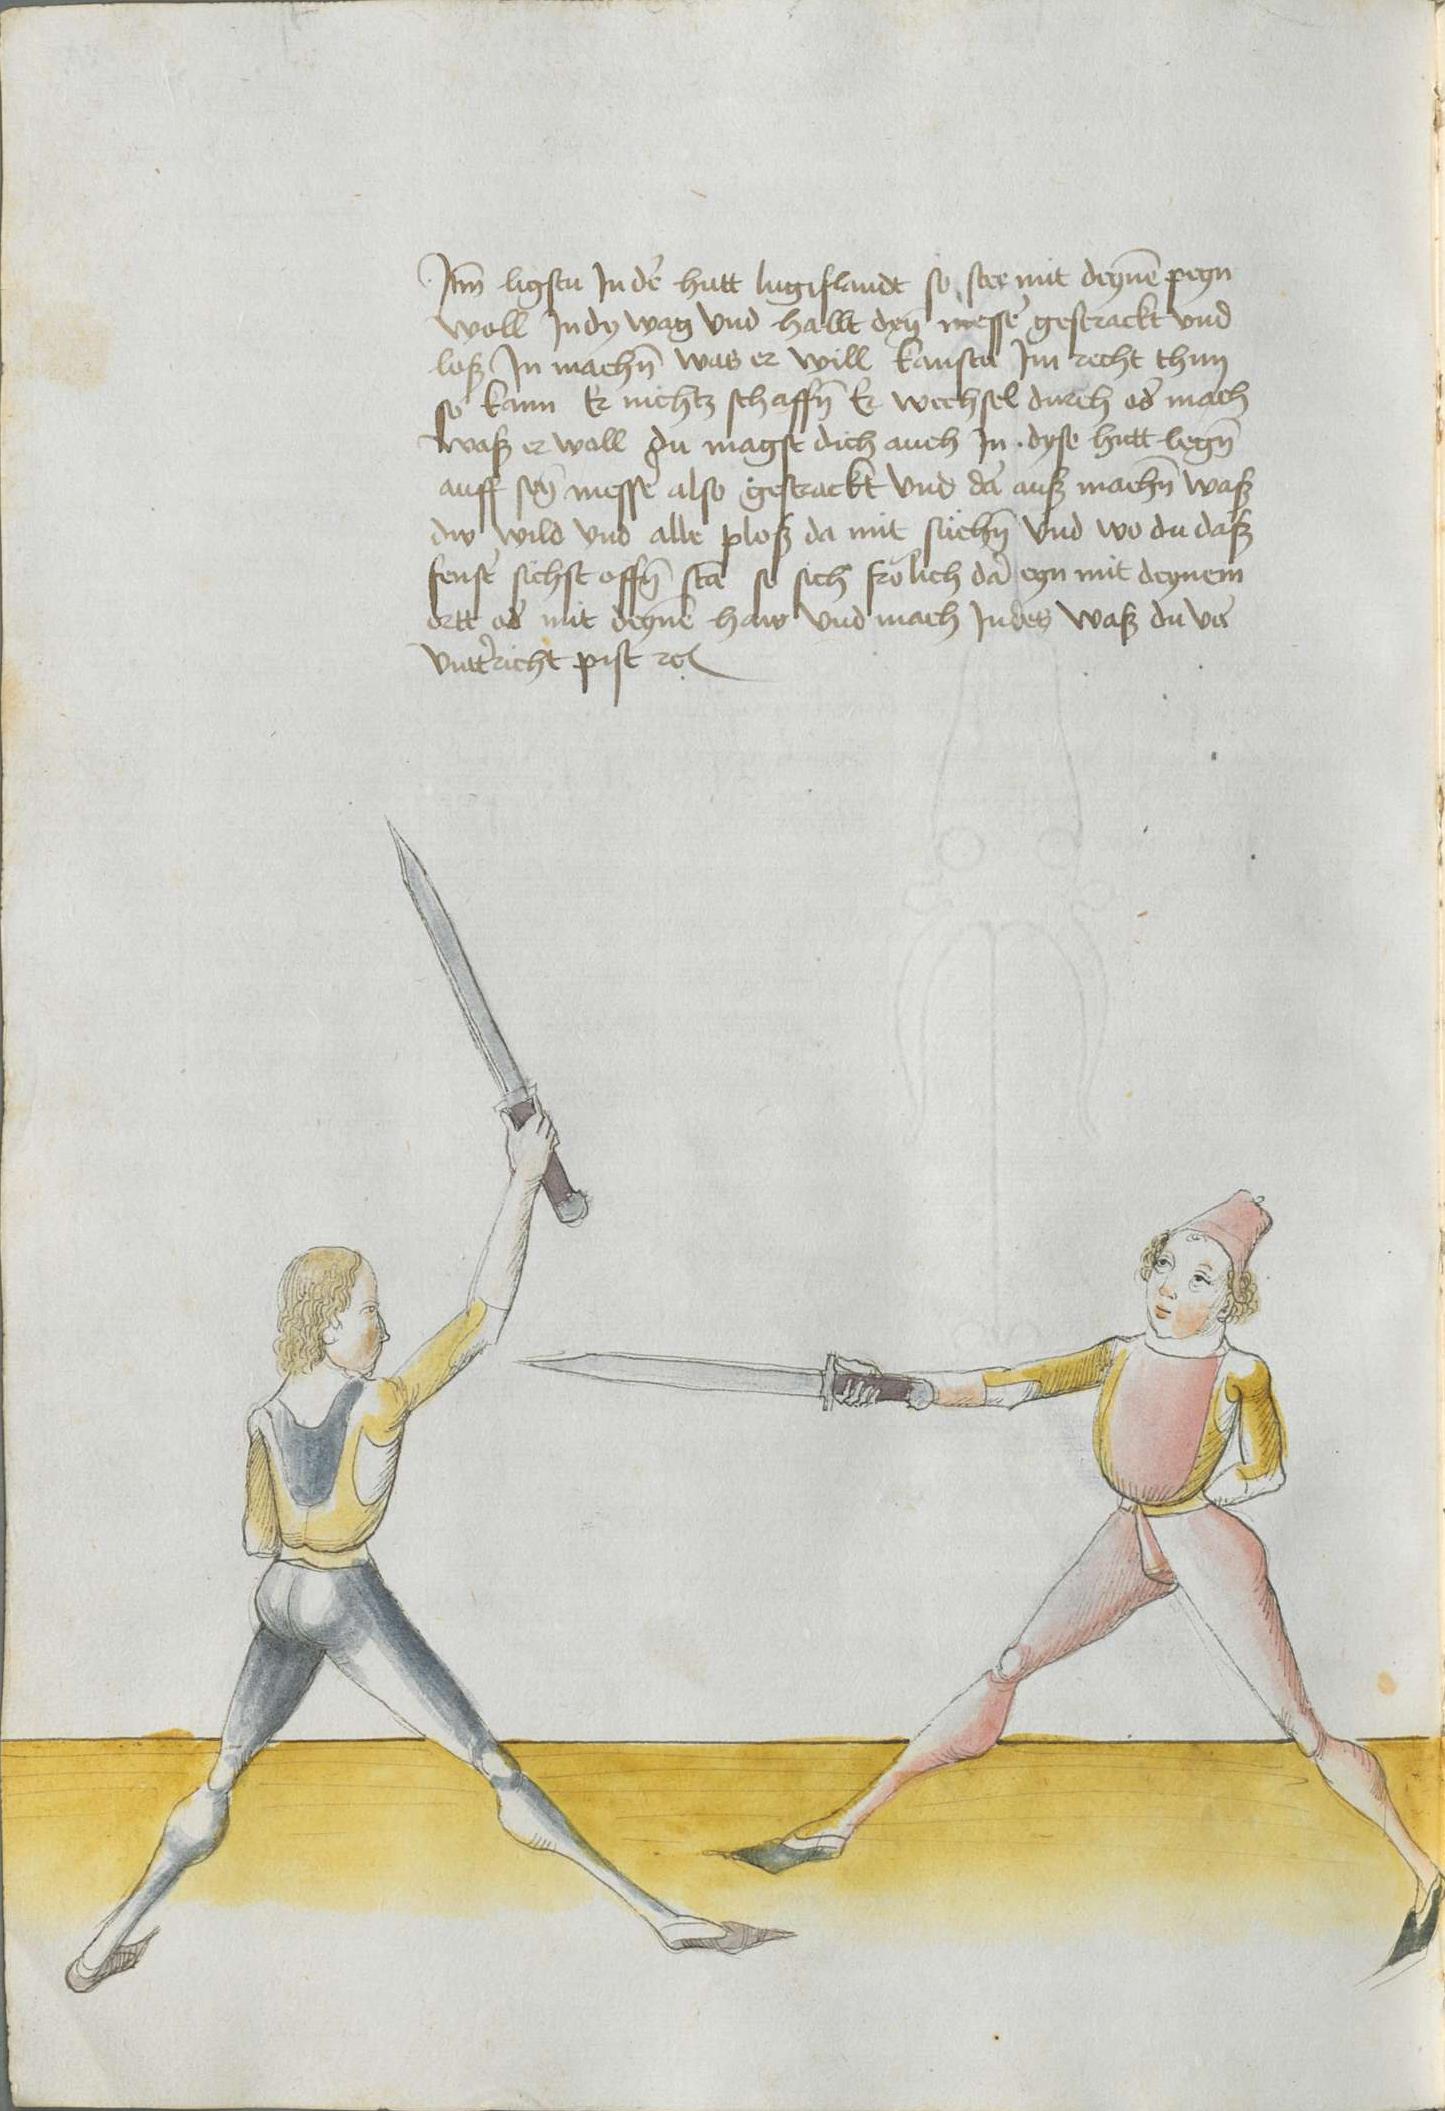 Itm̄ ligstu In de᷑ hutt lugißlandt so stee mit deynē pegn
woll In dy wag vnd hallt deyn̄ messe᷑ gestrackt vnd
loß In machn̄ was er will kanstu Im recht thun
so kann Er nichtz schaffn̄ Er wechsel durch od᷑ mach
waß er woll du magst dich auch In dyse hutt legn̄
auff seyn̄ messe᷑ also gestrackt vnd da᷑ auß machn̄ waß
dw wild vnd alle ploß da mit suchn̄ vnd wo du daß
fenst᷑ sichst offn̄ stā so sich frolich da᷑ eyn mit deynem
ortt od᷑ mit deynē haw vnd mach Indes waß du vō
vntt᷑richt pist rc